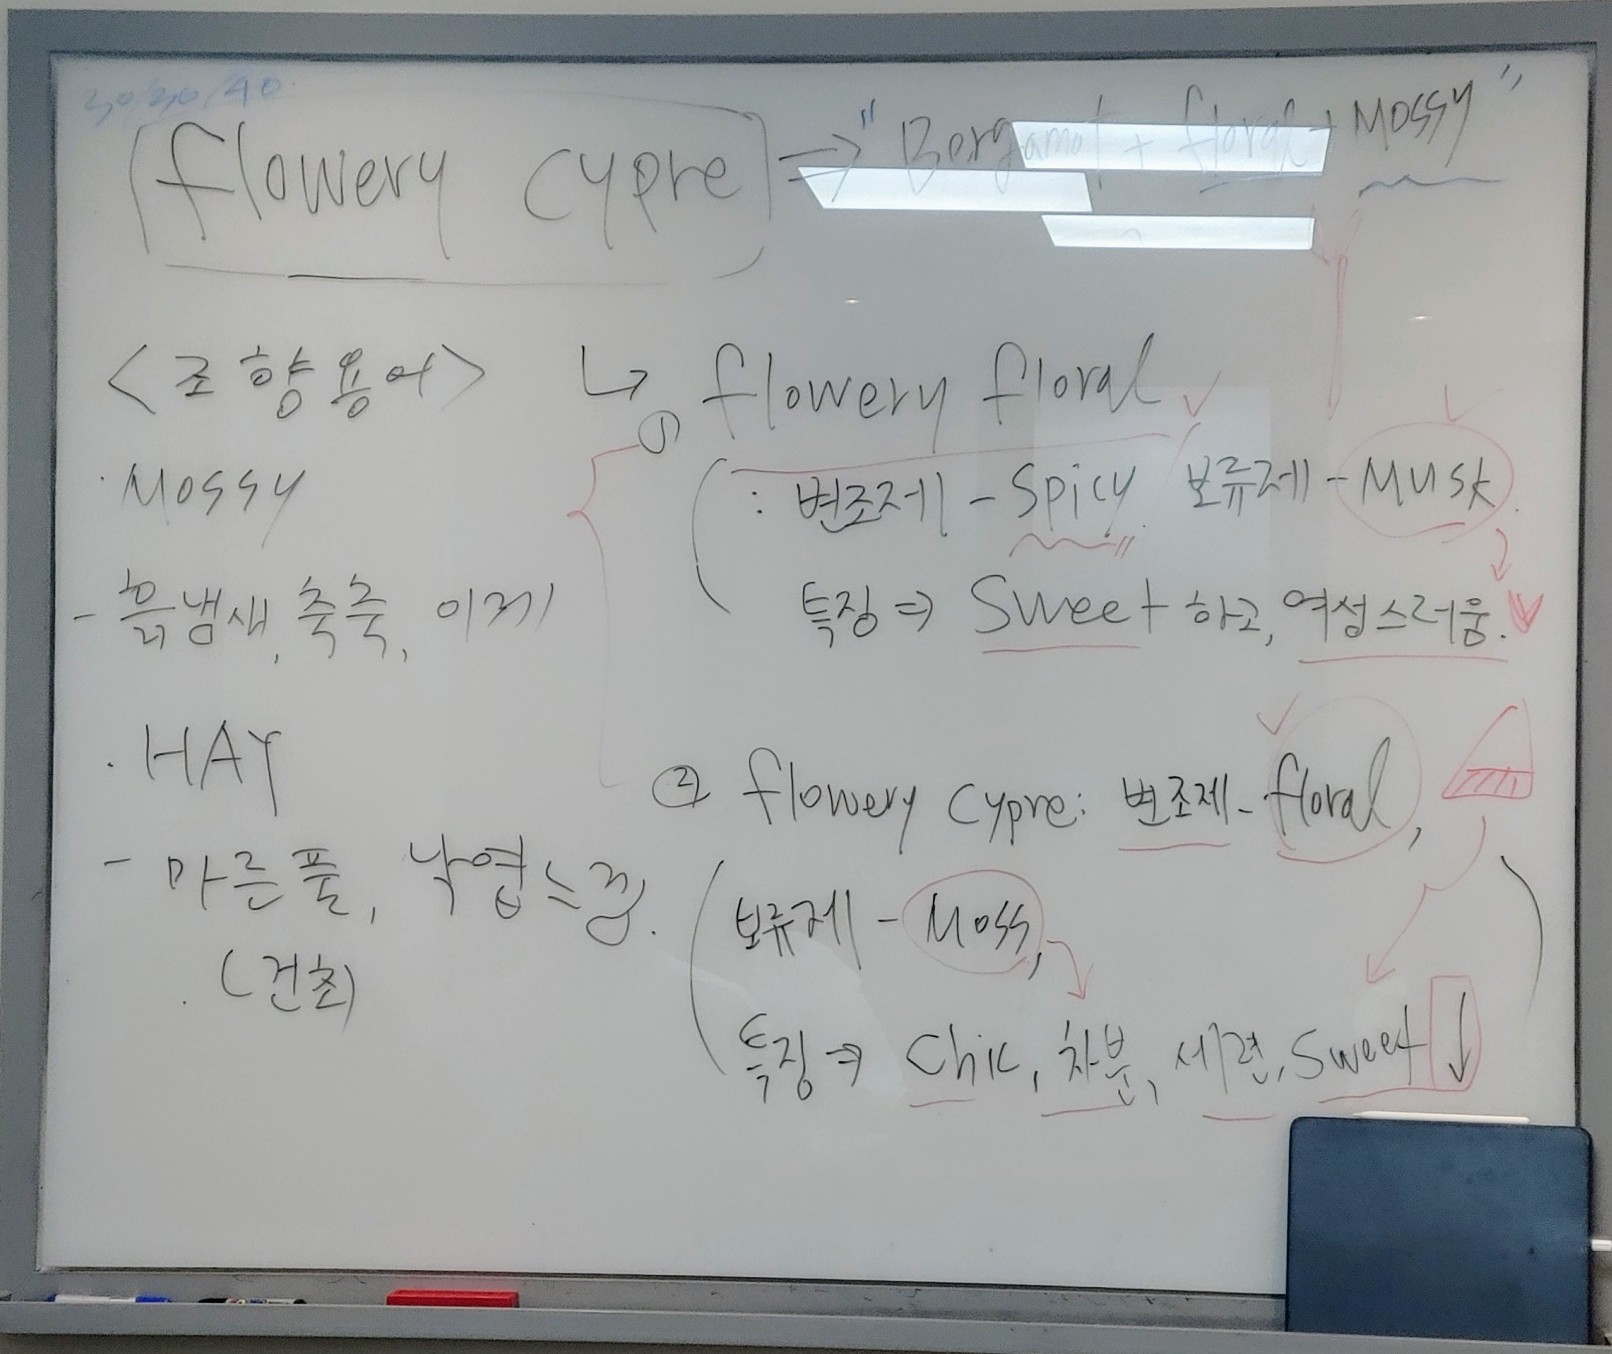 30/30/40
flowery cypre → "Bergamot + floral + Mossy"
<조향용어>
· Mossy
- 흙냄새, 축축, 이끼
· HAY
- 마른풀, 낙엽느낌.
(건초)
↳ ① flowery floral
: 변조제 - Spicy 보류제 - Musk.
특징 ⇒ Sweet 하고, 여성스러움.
② flowery cypre: 변조제 - floral,
보류제 - Moss,
특징 ⇒ Chic, 차분, 세련, Sweet ↓